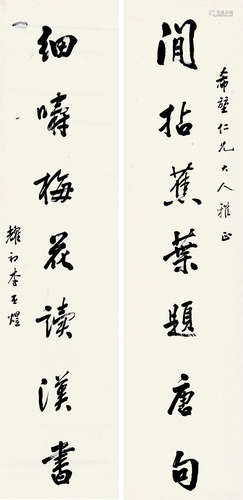 希塋仁兄大人雅正
閒拈蕉葉題唐句
細嚼梅花讀漢書
耀初李文煜